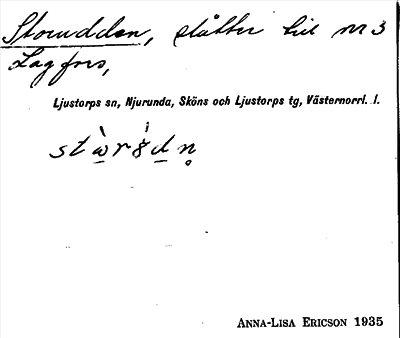 Storudden, slåtter till nr 3
Lagfors,
Ljustorps sn, Njurunda, Sköns och Ljustorps tg, Västernorrl. l.
ANNA-LISA ERICSON 1935